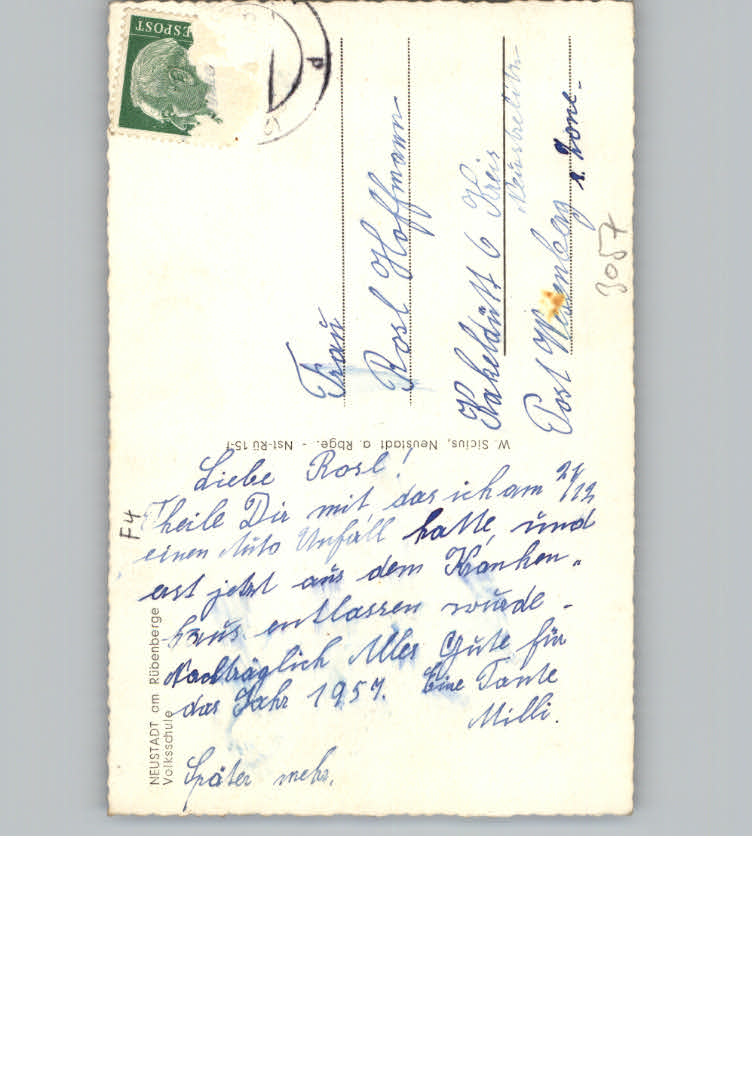 Liebe Rosl!
Theile Dir mit, das ich am 21/12
einen Auto Unfall hatte, und
erst jetzt aus dem Kranken-
haus entlassen wurde -
Nachträglich Alles Gute für
das Jahr 1957. Eine Tante
Milli.
Später mehr.
Frau
Rosl Hoffmann
6 Kreis
Neustrelitz
Post Wesenberg
r. Zone-
3057
F4
NEUSTADT am Rübenberge
Volksschule
W. Sicius, Neustadt a. Rbge. - Nst-Rü 15-f
ESPOST
d